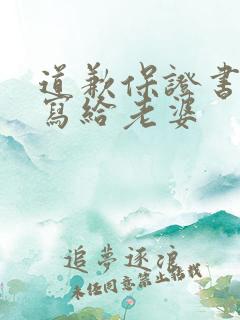 道歉保證書
寫給老婆
追夢逐浪
未任同意禁止轉載